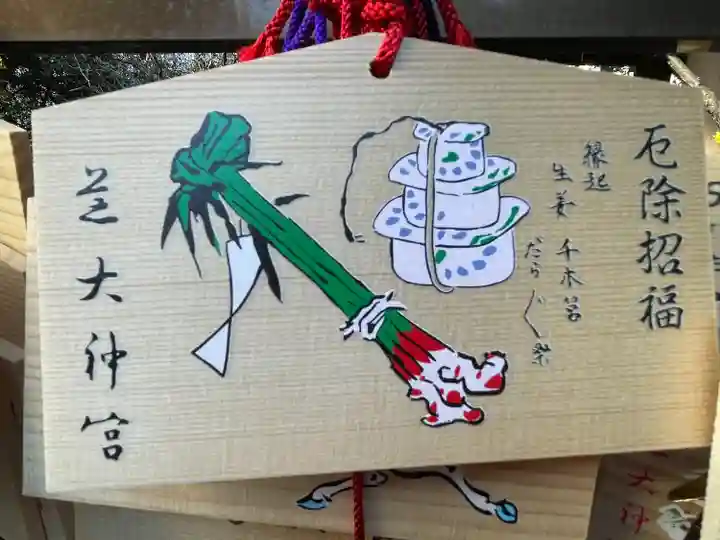 厄除招福
縁起
生姜 千木筥
だらぐ祭
芝大神宮
大神